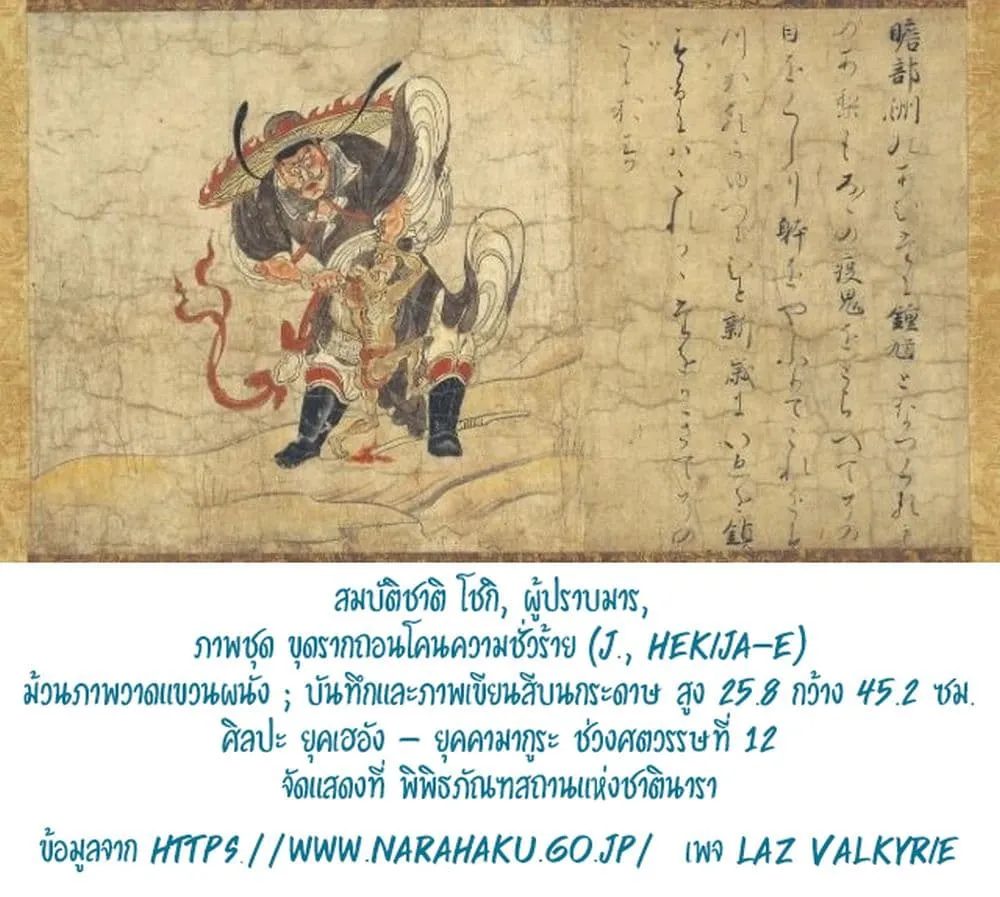 瞻部洲 鍾馗となつくる
疫鬼をとらへてその
目をくしり躰をやふりてこれを
ひと新歳にいゑを鎮
สมบัติชาติ โชกิ, ผู้ปราบมาร,
ภาพชุด ขุดรากถอนโคนความชั่วร้าย (J., HEKIJA-E)
ม้วนภาพวาดแขวนผนัง ; บันทึกและภาพเขียนสีบนกระดาษ สูง 25.8 กว้าง 45.2 ซม.
ศิลปะ ยุคเฮอัง – ยุคคามากูระ ช่วงศตวรรษที่ 12
จัดแสดงที่ พิพิธภัณฑสถานแห่งชาตินารา
ข้อมูลจาก HTTPS.//WWW.NARAHAKU.GO.JP/ เพจ LAZ VALKYRIE